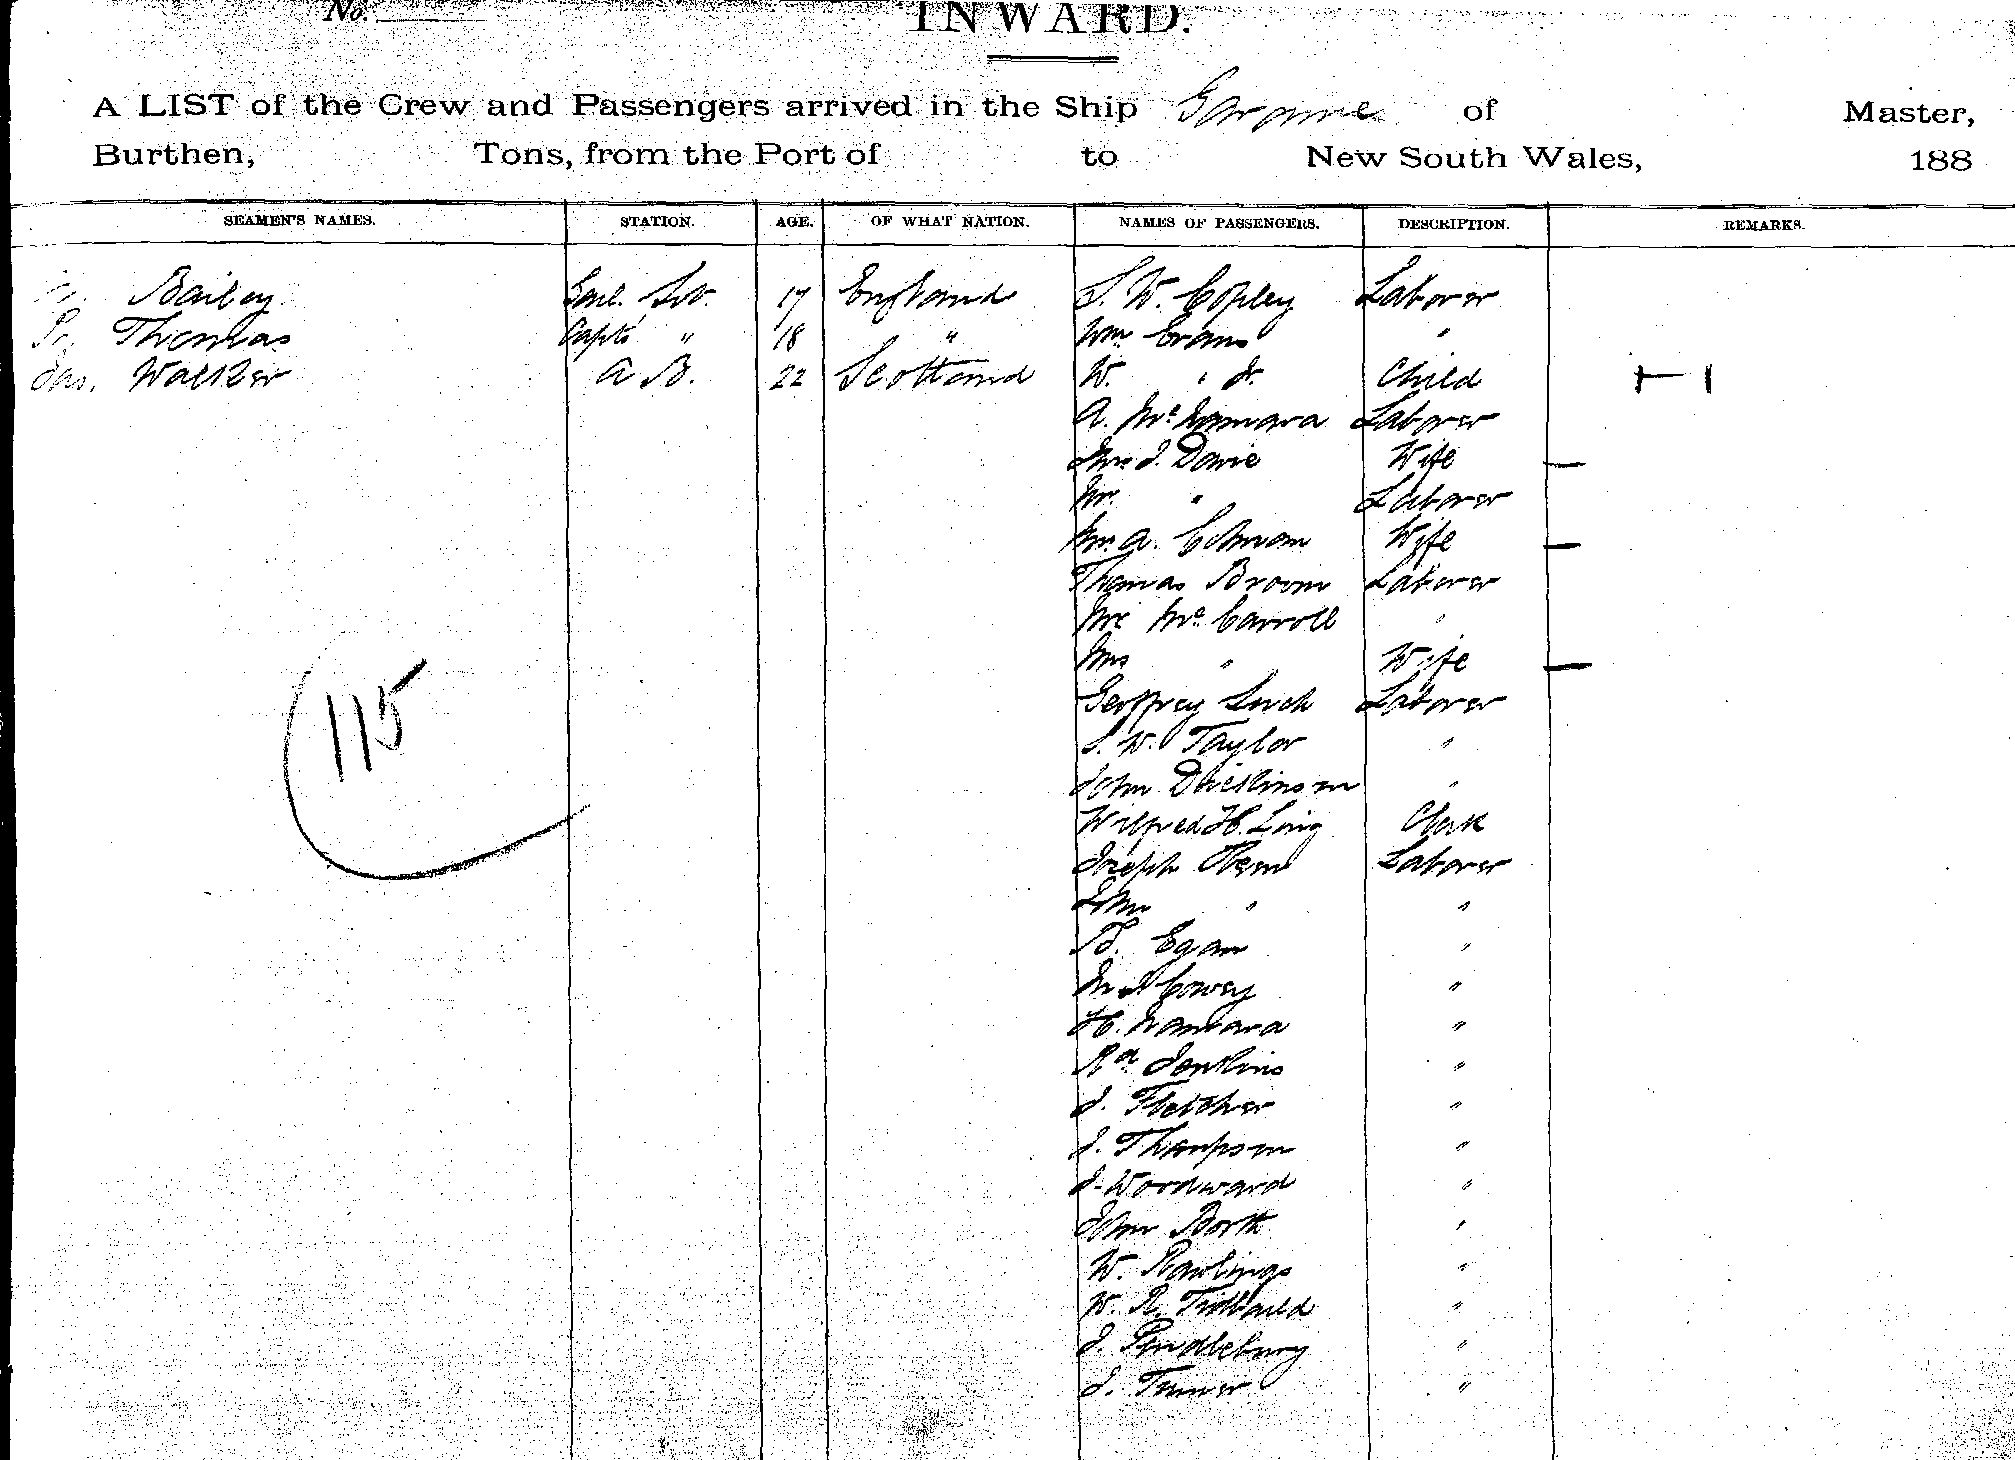 No.
INWARD.
A LIST of the Crew and Passengers arrived in the Ship Garonne of Master,
Burthen, Tons, from the Port of to New South Wales, 188
SEAMEN'S NAMES. STATION. AGE. OF WHAT NATION. NAMES OF PASSENGERS. DESCRIPTION. REMARKS.
Bailey 17 England S. W. Copley Laborer
Thomas Capts " 18 " Wm Evans "
Jas. Walker A B. 22 Scotland W. " Jr. Child
A. McNamara Laborer
Mrs J. Davie Wife
Mr. " Laborer
A. Wife
Thomas Broom Laborer
Mr Mc Carroll "
Mrs " Wife
Geoffrey Laborer
S. W. Taylor "
John Dickinson "
Wilfred H. Clerk
Joseph Laborer
" "
B. Egan "
Covey "
H. "
Rd Jenkins "
J. Fletcher "
J. Thompson "
J. Woodward "
John Borth "
W. Rawlings "
W. R. "
J. Pendlebury "
J. Turner "
115